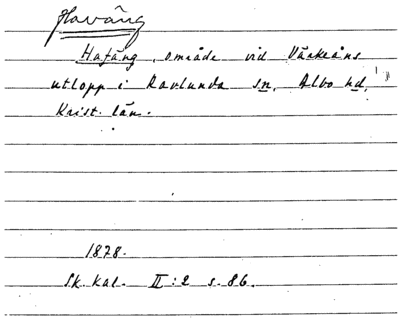 Haväng
Hafäng, område vid Verkeåns
utlopp i Ravlunda sn, Albo hd,
Krist. län.
1878.
Sk. Kal. II:2 s. 86.